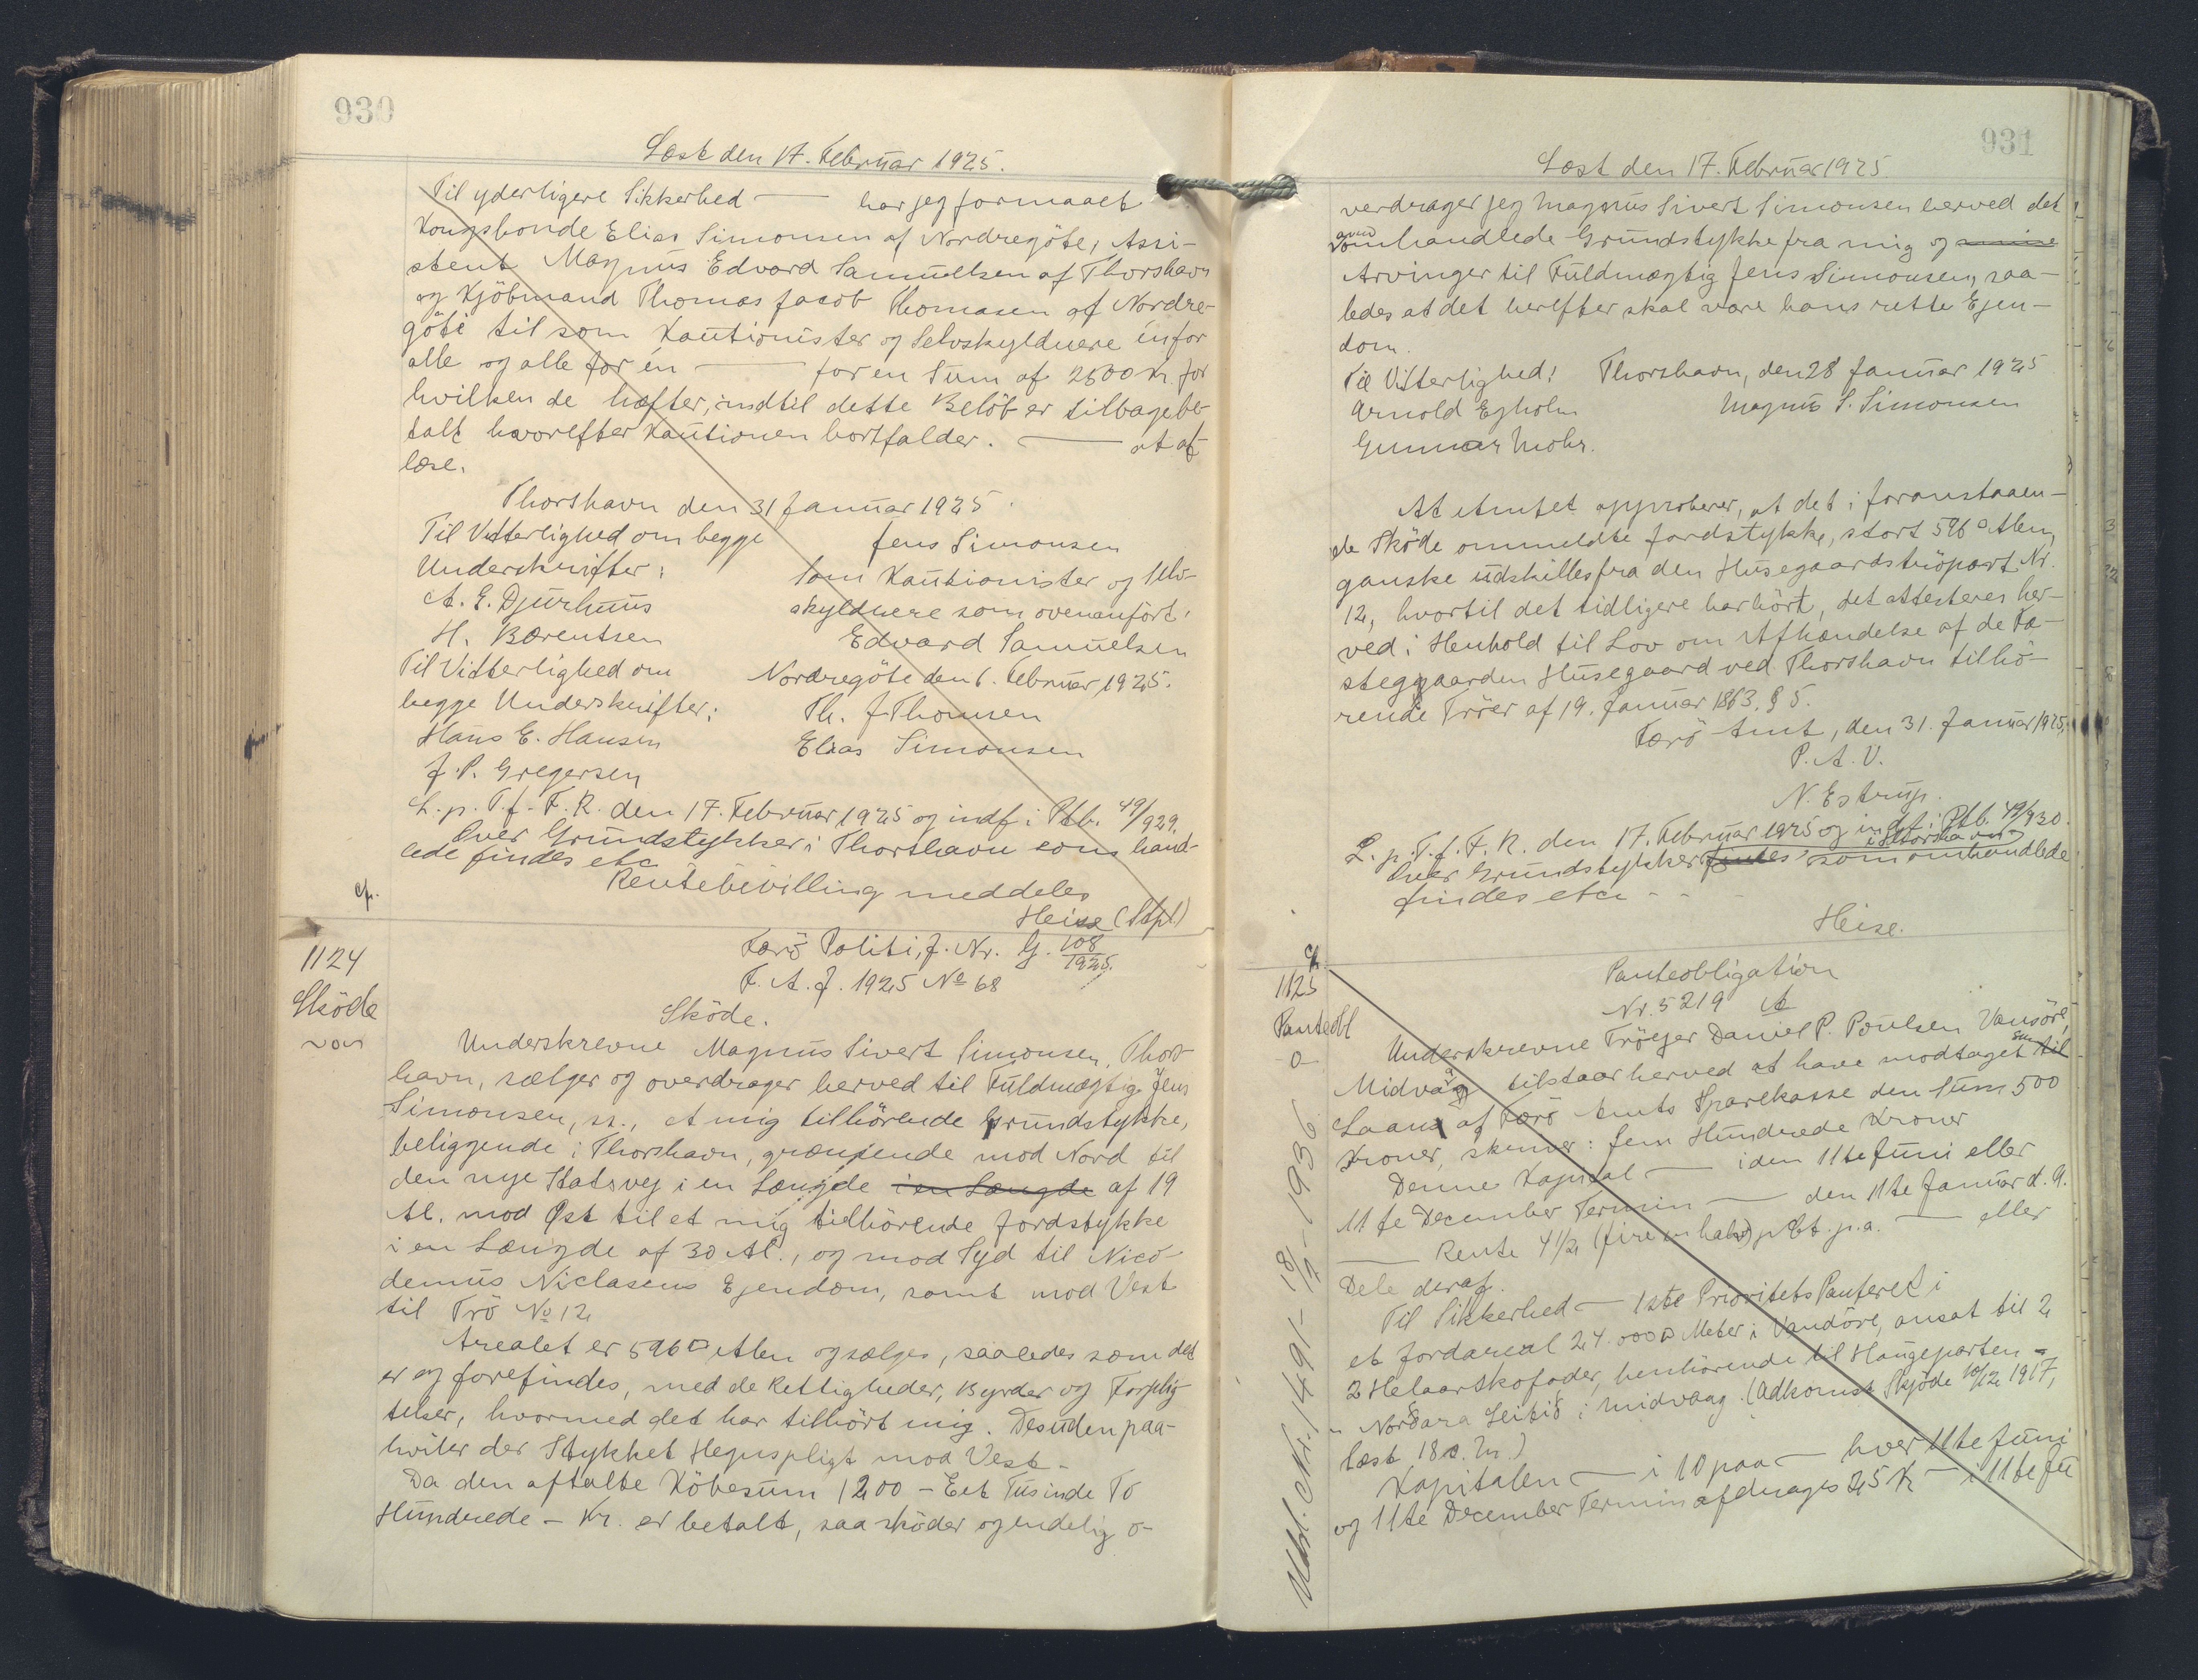 930
Læst den 17. Februar 1925.
Til yderligere Sikkerhed — har jeg formaaet
Kongsbonde Elias Simonsen af Nordregöte, Assi-
stent Magnus Edvard Samuelsen af Thorshavn
og Kjöbmand Thomas Jacob Thomasen af Nordre-
göte til som Kautionister og Selvskyldnere én for
alle og alle for én — for en Sum af 2500 Kr. for
hvilken de hæfter, indtil dette Belöb er tilbagebe-
talt hvorefter Kautionen bortfalder. — at af-
læse.
Thorshavn den 31 Januar 1925.
Til Vitterlighed om begge Jens Simonsen
Underskrifter: Som Kautionister og Selv-
A. E. Djurhuus skyldnere som ovenanfört.
H. Bærentsen Edvard Samuelsen
Til Vitterlighed om Nordregöte den 6. Februar 1925.
begge Underskrifter: Th. J Thomsen
Hans E. Hansen Elias Simonsen
J. P. Gregersen
L. p. T. f. F. R. den 17. Februar 1925 og indf i Ptb. 49/929.
Over Grundstykker i Thorshavn som hand-
lede findes etc
Rentebevilling meddeles
cfr. Heise (Stpl)
1124 Færö Politi, J. Nr. G. 108/1925.
Sköde F. A. J. 1925 No 68
Sköde.
Underskrevne Magnus Sivert Simonsen, Thors-
havn, sælger og overdrager herved til Fuldmægtig Jens
Simonsen, sr., et mig tilhörende Grundstykke,
beliggende i Thorshavn, grænsende mod Nord til
den nye Statsvej i en Længde i en Længde af 19
Al. mod Øst til et mig tilhörende Jordstykke
i en Længde af 30 Al., og mod Syd til Nico-
demus Niclasens Ejendom, samt mod Vest
til Trö No 12
Arealet er 596 □ Alen og sælges, saaledes som det
er og forefindes, med de Rettigheder, Byrder og Forplig-
telser, hvormed det har tilhört mig. Desuden paa-
hviler der Stykket Hegnspligt mod Vest.
Da den aftalte Köbesum 1200 – Eet Tusinde To
Hundrede – Kr. er betalt, saa sköder og endelig o-
931
Læst den 17. Februar 1925
verdrager jeg Magnus Sivert Simonsen herved det
omhandlede Grundstykke fra mig og mine
Arvinger til Fuldmægtig Jens Simonsen, saa-
ledes at det herefter skal være hans rette Ejen-
dom.
Til Vitterlighed! Thorshavn, den 28 Januar 1925
Arnold Egholm Magnus S. Simonsen
Gunnar Mohr.
At Amtet approberer, at det i foranstaaen-
de Sköde ommeldte Jordstykke, stort 596 □ Alen,
ganske udskilles fra den Husegaardströpart Nr.
12, hvortil det tidligere har hört, det attesteres her-
ved i Henhold til Lov om Afhændelse af de Fæ-
steggaarden Husegaard ved Thorshavn tilhö-
rende Tröer af 19. Januar 1863. § 5.
Færö Amt, den 31. Januar 1925.
P. A. V.
N. Estrup.
L. p. T. f. F. R. den 17. Februar 1925 og indf. i Ptb. 49/930.
i Thorshavn
Over Grundstykker findes som omhandlede
findes etc
Heise.
cfr.
1125 Panteobligation
Panteobl Nr. 5219 A
Underskrevne Tröejer Daniel P. Poulsen Vansöre,
Midvaag tilstaar herved at have modtaget til
Laans af Færö Amts Sparekasse den Sum 500
Kroner, skriver: fem Hundrede Kroner
Denne Kapital — i den 11te Juni eller
11te December Termin — den 11te Januar d. A.
— Rente 4 1/2 (fire en halv) pCt. p.a. — eller
Dele deraf.
Til Sikkerhed — 1ste Prioritets Panteret i
et Jordareal 24.000 □ Meter i Vandöre, ansat til 2
2 Helaarskofoder, henhörende til Haugeparten =
" Norðara Leitið i Midvaag. (Adkomst Skjöde 10/12 1917,
læst 18 s. M.)
Kapitalen — i 10 paa — hver 11te Juni
og 11te December Termin afdrages 25 Kr — i 11te Ju
Udsl. Nr. 1491 - 1936